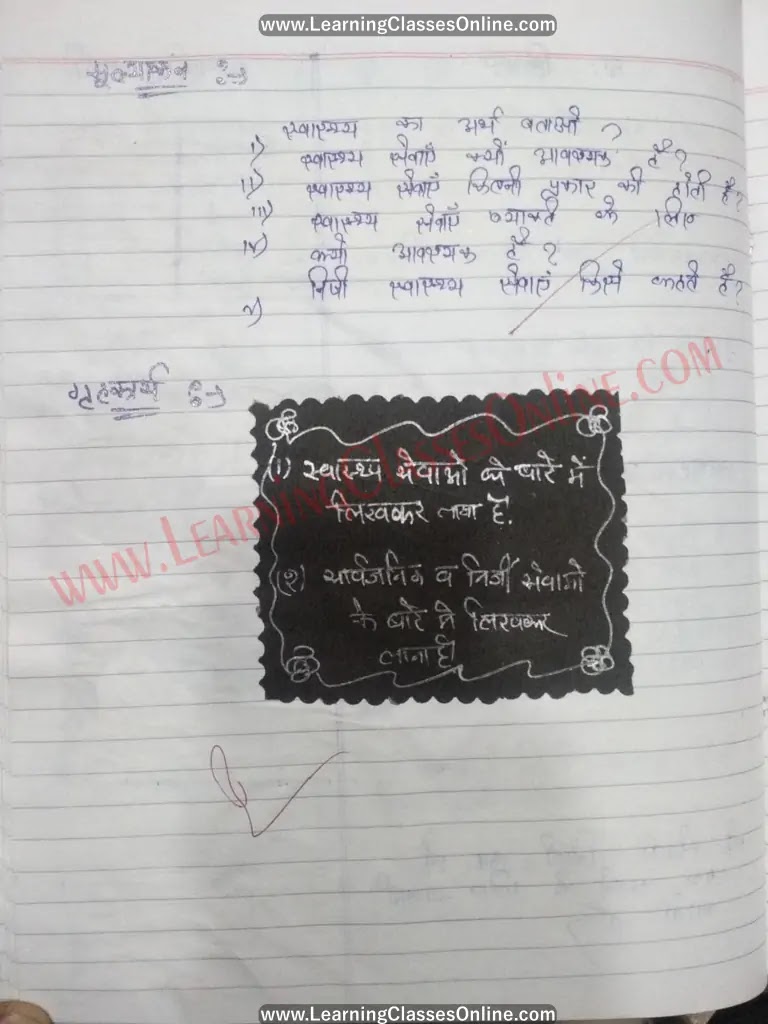 www.LearningClassesOnline.com
मूल्यांकन :-
i) स्वास्थ्य का अर्थ बताओ ?
ii) स्वास्थ्य सेवाएँ क्यों आवश्यक है ?
iii) स्वास्थ्य सेवाएँ कितनी प्रकार की होती है ?
iv) स्वास्थ्य सेवाएँ व्यक्ति के लिए
क्यों आवश्यक है ?
v) निजी स्वास्थ्य सेवाएं किसे कहते है ?
गृहकार्य :-
(1) स्वास्थ्य सेवाओं के बारे में
लिखकर लाना है.
(२) सार्वजनिक व निजी सेवाओ
के बारे मे लिखकर
लाना है
www.LearningClassesOnline.com
www.LearningClassesOnline.com